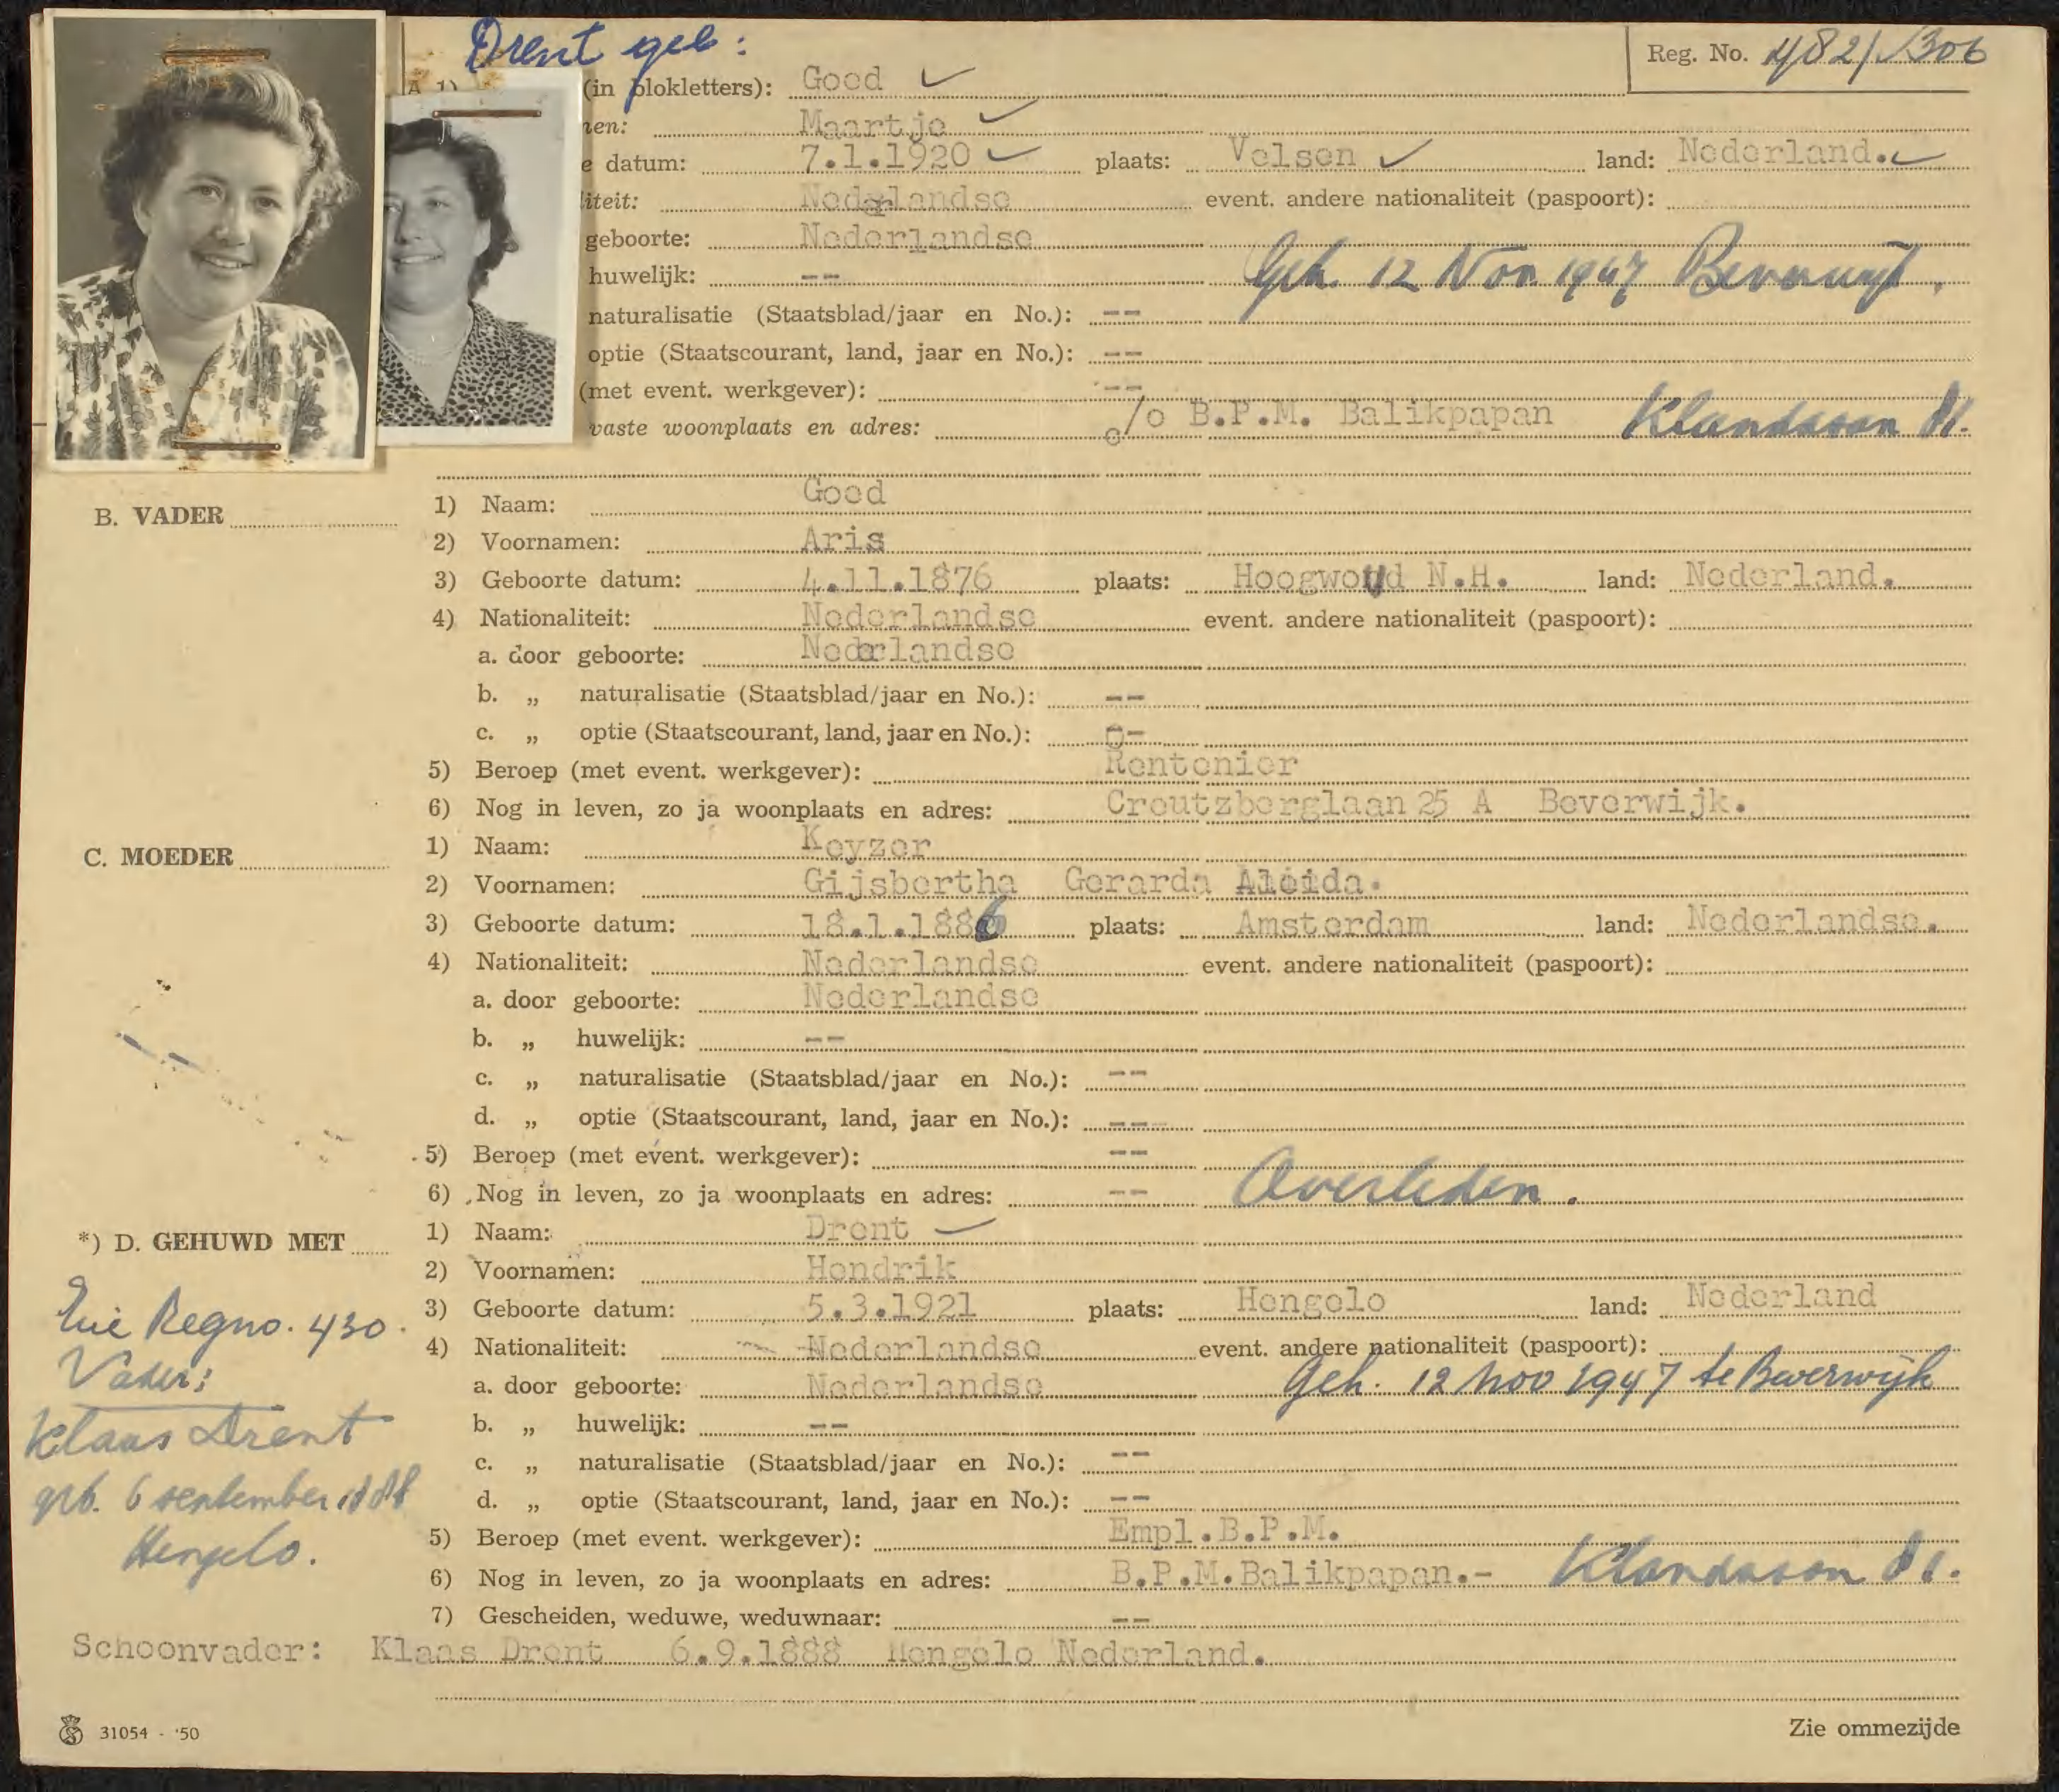 Drent geb:
Reg. No. 482/1306
(in blokletters): Goed
nen: Maartje
e datum: 7.1.1920 plaats: Velsen land: Nederland.
liteit: Nederlandse event. andere nationaliteit (paspoort):
geboorte: Nederlandse
huwelijk: -- Geh. 12 Nov. 1947 Beverwijk.
naturalisatie (Staatsblad/jaar en No.): --
optie (Staatscourant, land, jaar en No.): --
(met event. werkgever): --
vaste woonplaats en adres: c/o B.P.M. Balikpapan Klandasan 81.
B. VADER
1) Naam: Goed
2) Voornamen: Aris
3) Geboorte datum: 4.11.1876 plaats: Hoogwoud N.H. land: Nederland.
4) Nationaliteit: Nederlandse event. andere nationaliteit (paspoort):
a. door geboorte: Nederlandse
b. „ naturalisatie (Staatsblad/jaar en No.): --
c. „ optie (Staatscourant, land, jaar en No.): --
5) Beroep (met event. werkgever): Rentenier
6) Nog in leven, zo ja woonplaats en adres: Creutzberglaan 25 A Beverwijk.
C. MOEDER
1) Naam: Keyzer
2) Voornamen: Gijsbertha Gerarda Aleida.
3) Geboorte datum: 18.1.1886 plaats: Amsterdam land: Nederlandse.
4) Nationaliteit: Nederlandse event. andere nationaliteit (paspoort):
a. door geboorte: Nederlandse
b. „ huwelijk: --
c. „ naturalisatie (Staatsblad/jaar en No.): --
d. „ optie (Staatscourant, land, jaar en No.): --
5) Beroep (met event. werkgever): --
6) Nog in leven, zo ja woonplaats en adres: -- Overleden.
*) D. GEHUWD MET
1) Naam: Drent
2) Voornamen: Hendrik
3) Geboorte datum: 5.3.1921 plaats: Hengelo land: Nederland
4) Nationaliteit: Nederlandse event. andere nationaliteit (paspoort):
a. door geboorte: Nederlandse Geh. 12 Nov 1947 te Beverwijk
b. „ huwelijk: --
c. „ naturalisatie (Staatsblad/jaar en No.): --
d. „ optie (Staatscourant, land, jaar en No.): --
5) Beroep (met event. werkgever): Empl.B.P.M.
6) Nog in leven, zo ja woonplaats en adres: B.P.M.Balikpapan.- Klandasan 81.
7) Gescheiden, weduwe, weduwnaar: --
Zie Regno. 430.
Vader:
Klaas Drent
geb. 6 september 1888
Hengelo.
Schoonvader: Klaas Drent 6.9.1888 Hengelo Nederland.
31054 - '50
Zie ommezijde